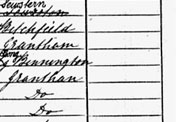 Sewstern
Bitchfield
Grantham
Long Bennington
Grantham
Do
Do